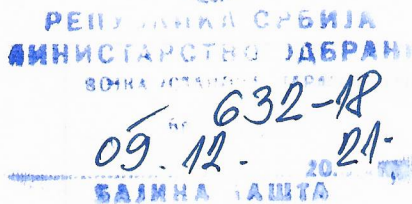 РЕПУБЛИКА СРБИЈА
МИНИСТАРСТВО ОДБРАНЕ
ВОЈНА УСТАНОВА
632-18
09. 12. 2021.
БАЈИНА БАШТА